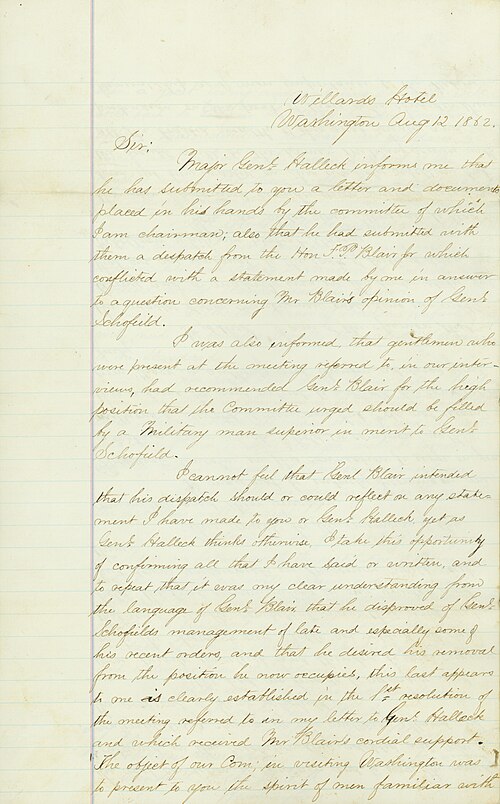 Willards Hotel
Washington Aug 12 1862.
Sir;
Major Genl Halleck informs me that
he has submitted to you a letter and documents
placed in his hands by the committee of which
I am chairman; also that he had submitted with
them a despatch from the Hon F. P. Blair Jr which
conflicted with a statement made by me in answer
to a question concerning Mr Blair's opinion of Genl
Schofield.
I was also informed, that gentlemen who
were present at the meeting referred to, in our inter-
views, had recommended Genl Blair for the high
position that the Committee urged should be filled
by a Military man superior in merit to Genl
Schofield.
I cannot feel that Genl Blair intended
that his dispatch should or could reflect on any state-
ment I have made to you or Genl Halleck, yet as
Genl Halleck thinks otherwise, I take this opportunity
of confirming all that I have said or written, and
to repeat that it was my clear understanding from
the language of Genl Blair, that he disproved of Genl
Schofields management of late and especially some of
his recent orders, and that he desired his removal
from the position he now occupies, this last appears
to me is clearly established in the 1st resolution of
the meeting referred to in my letter to Genl Halleck
and which received Mr Blair's cordial support.
The object of our Com; in visiting Washington was
to present to you the spirit of men familiar with